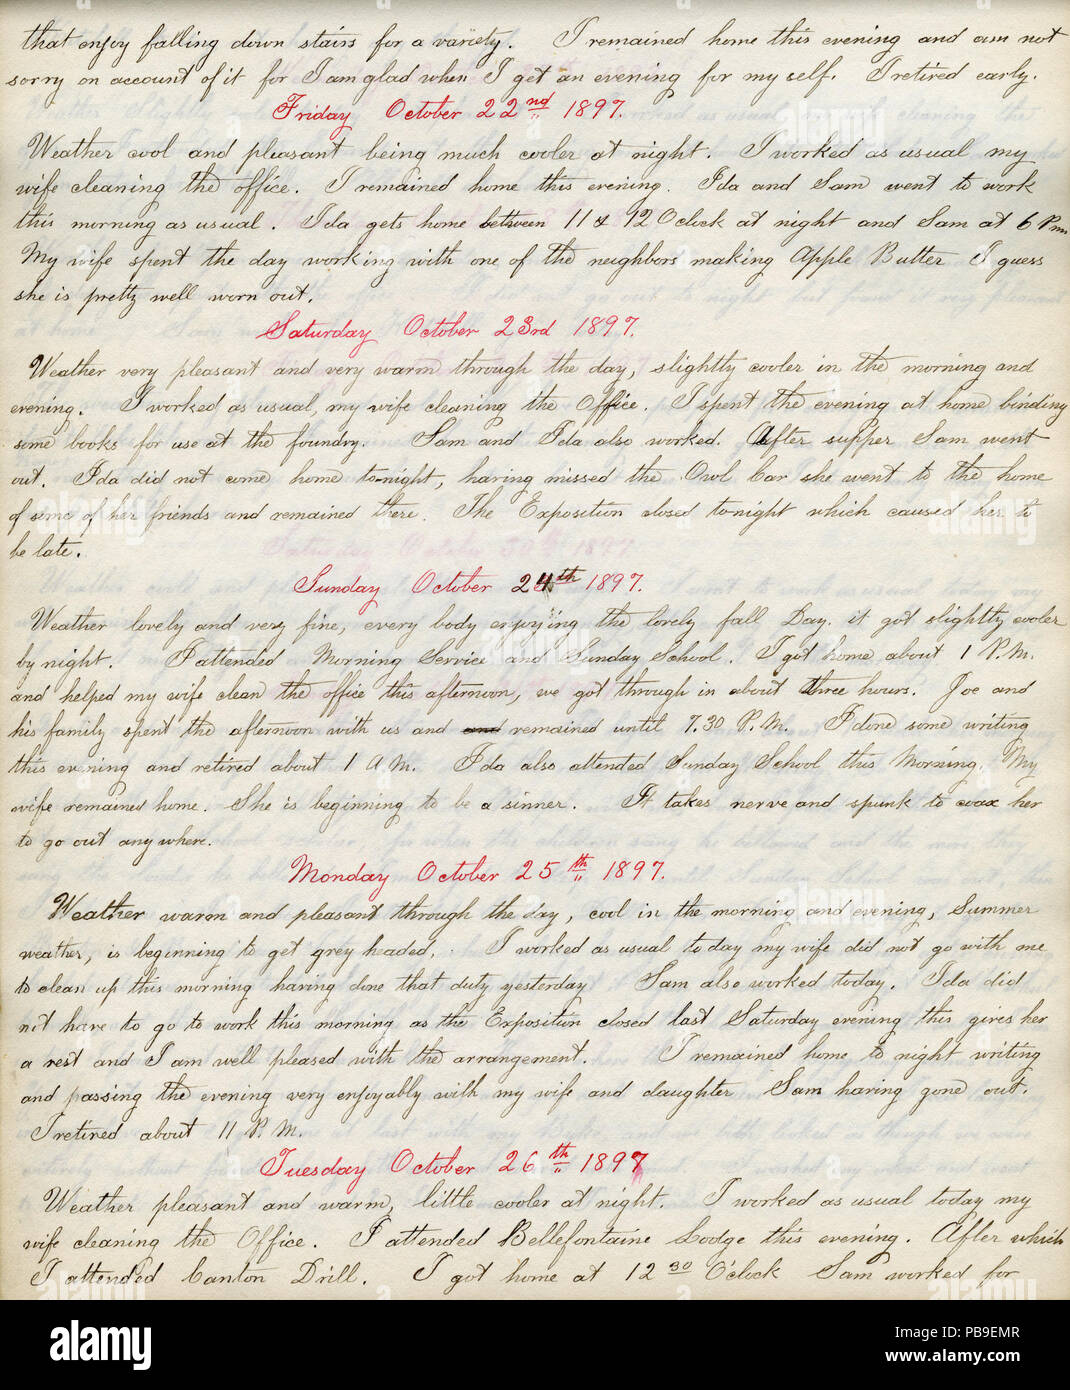 that enjoy falling down stairs for a variety. I remained home this evening and am not
sorry on account of it for I am glad when I get an evening for my self. I retired early.
Friday October 22nd 1897.
Weather cool and pleasant being much cooler at night. I worked as usual my
wife cleaning the office. I remained home this evening. Ida and Sam went to work
this morning as usual. Ida gets home between 11 & 12 Oclock at night and Sam at 6 Pm
My wife spent the day working with one of the neighbors making Apple Butter I guess
she is pretty well worn out.
Saturday October 23rd 1897.
Weather very pleasant and very warm through the day, slightly cooler in the morning and
evening. I worked as usual, my wife cleaning the Office. I spent the evening at home binding
some books for use at the foundry. Sam and Ida also worked. After supper Sam went
out. Ida did not come home to-night, having missed the Owl Car she went to the home
of some of her friends and remained there. The Exposition closed to-night which caused her to
be late.
Sunday October 24th 1897.
Weather lovely and very fine, every body enjoying the lovely fall Day. it got slightly cooler
by night. I attended Morning Service and Sunday School. I got home about 1 P.M.
and helped my wife clean the office this afternoon, we got through in about three hours. Joe and
his family spent the afternoon with us and and remained until 7.30 P.M. I done some writing
this evening and retired about 1 A.M. Ida also attended Sunday School this Morning. My
wife remained home. She is beginning to be a sinner. It takes nerve and spunk to coax her
to go out any where.
Monday October 25th 1897.
Weather warm and pleasant through the day, cool in the morning and evening, Summer
weather, is beginning to get grey headed. I worked as usual today my wife did not go with me
to clean up this morning having done that duty yesterday Sam also worked today. Ida did
not have to go to work this morning as the Exposition closed last Saturday evening this gives her
a rest and I am well pleased with the arrangement. I remained home to night writing
and passing the evening very enjoyably with my wife and daughter Sam having gone out.
I retired about 11 P.M.
Tuesday October 26th 1897
Weather pleasant and warm, little cooler at night. I worked as usual today my
wife cleaning the Office. I attended Bellefontaine Lodge this evening. After which
I attended Canton Drill. I got home at 12 30 O'clock Sam worked for
alamy
Image ID: PB9EMR
www.alamy.com